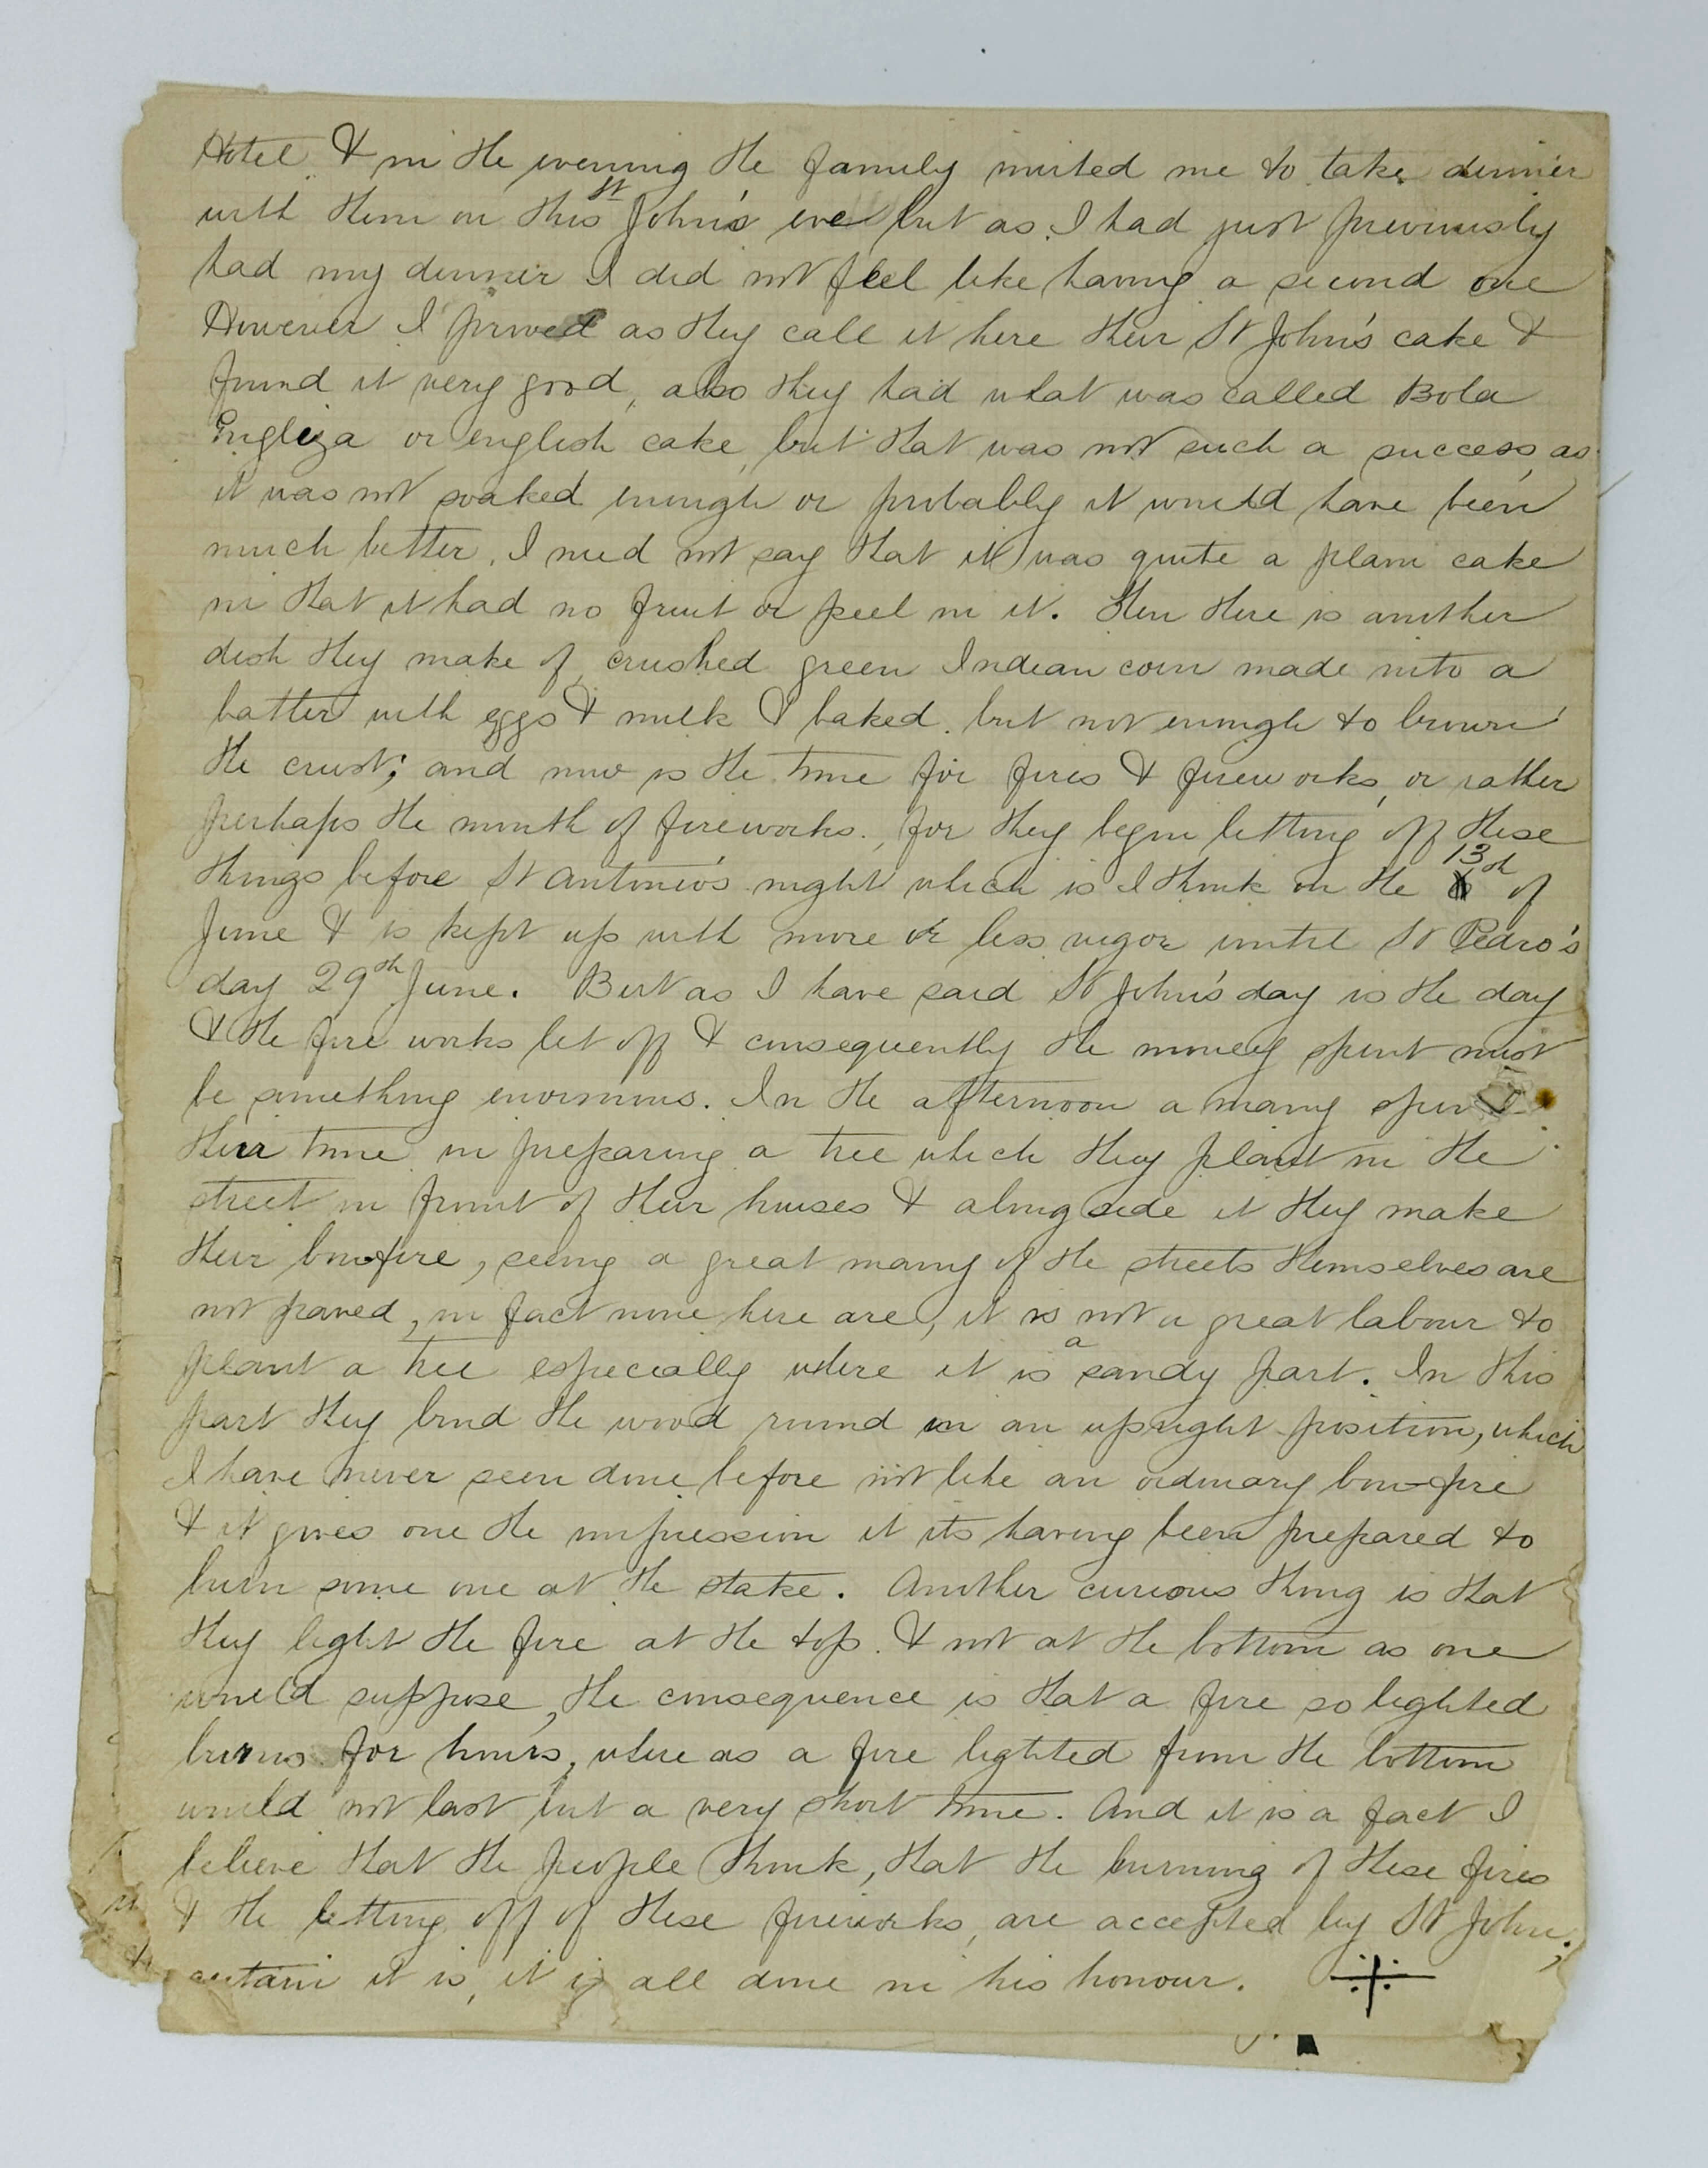 Hotel & in the evening the family invited me to take dinner
with them on this St John's eve but as I had just previously
had my dinner I did not feel like having a second one
However I proved as they call it here their St John's cake &
found it very good, also they had what was called Bola
Engleza or english cake, but that was not such a success, as
it was not soaked enough or probably it would have been
much better. I need not say that it was quite a plain cake
in that it had no fruit or peel in it. Then there is another
dish they make of crushed green Indian corn made into a
batter with eggs & milk & baked. but not enough to brown
the crust; and now is the time for fires & fireworks, or rather
perhaps the month of fireworks., for they begin letting off these
things before St Antonio's night which is I think on the 13th of
June & is kept up with more or less vigor until St Pedro's
day 29th June. But as I have said St John's day is the day
& the fire works let off & consequently the money spent must
be something enormous. In the afternoon a many spend
their time in preparing a tree which they plant in the
street in front of their houses & along side it they make
their bonfire, seeing a great many of the streets themselves are
not paved, in fact none here are, it is not a great labour to
plant a tree especially where it is a sandy part. In this
part they bind the wood round in an upright position, which
I have never seen done before not like an ordinary bon-fire
& it gives one the impression it its having been prepared to
burn some one at the stake. Another curious thing is that
they light the fire at the top. & not at the bottom as one
would suppose, the consequence is that a fire so lighted
burns for hours, where as a fire lighted from the bottom
would not last but a very short time. And it is a fact I
believe that the people think, that the burning of these fires
& the letting off of these fireworks, are accepted by St John.,
certain it is, it is all done in his honour.